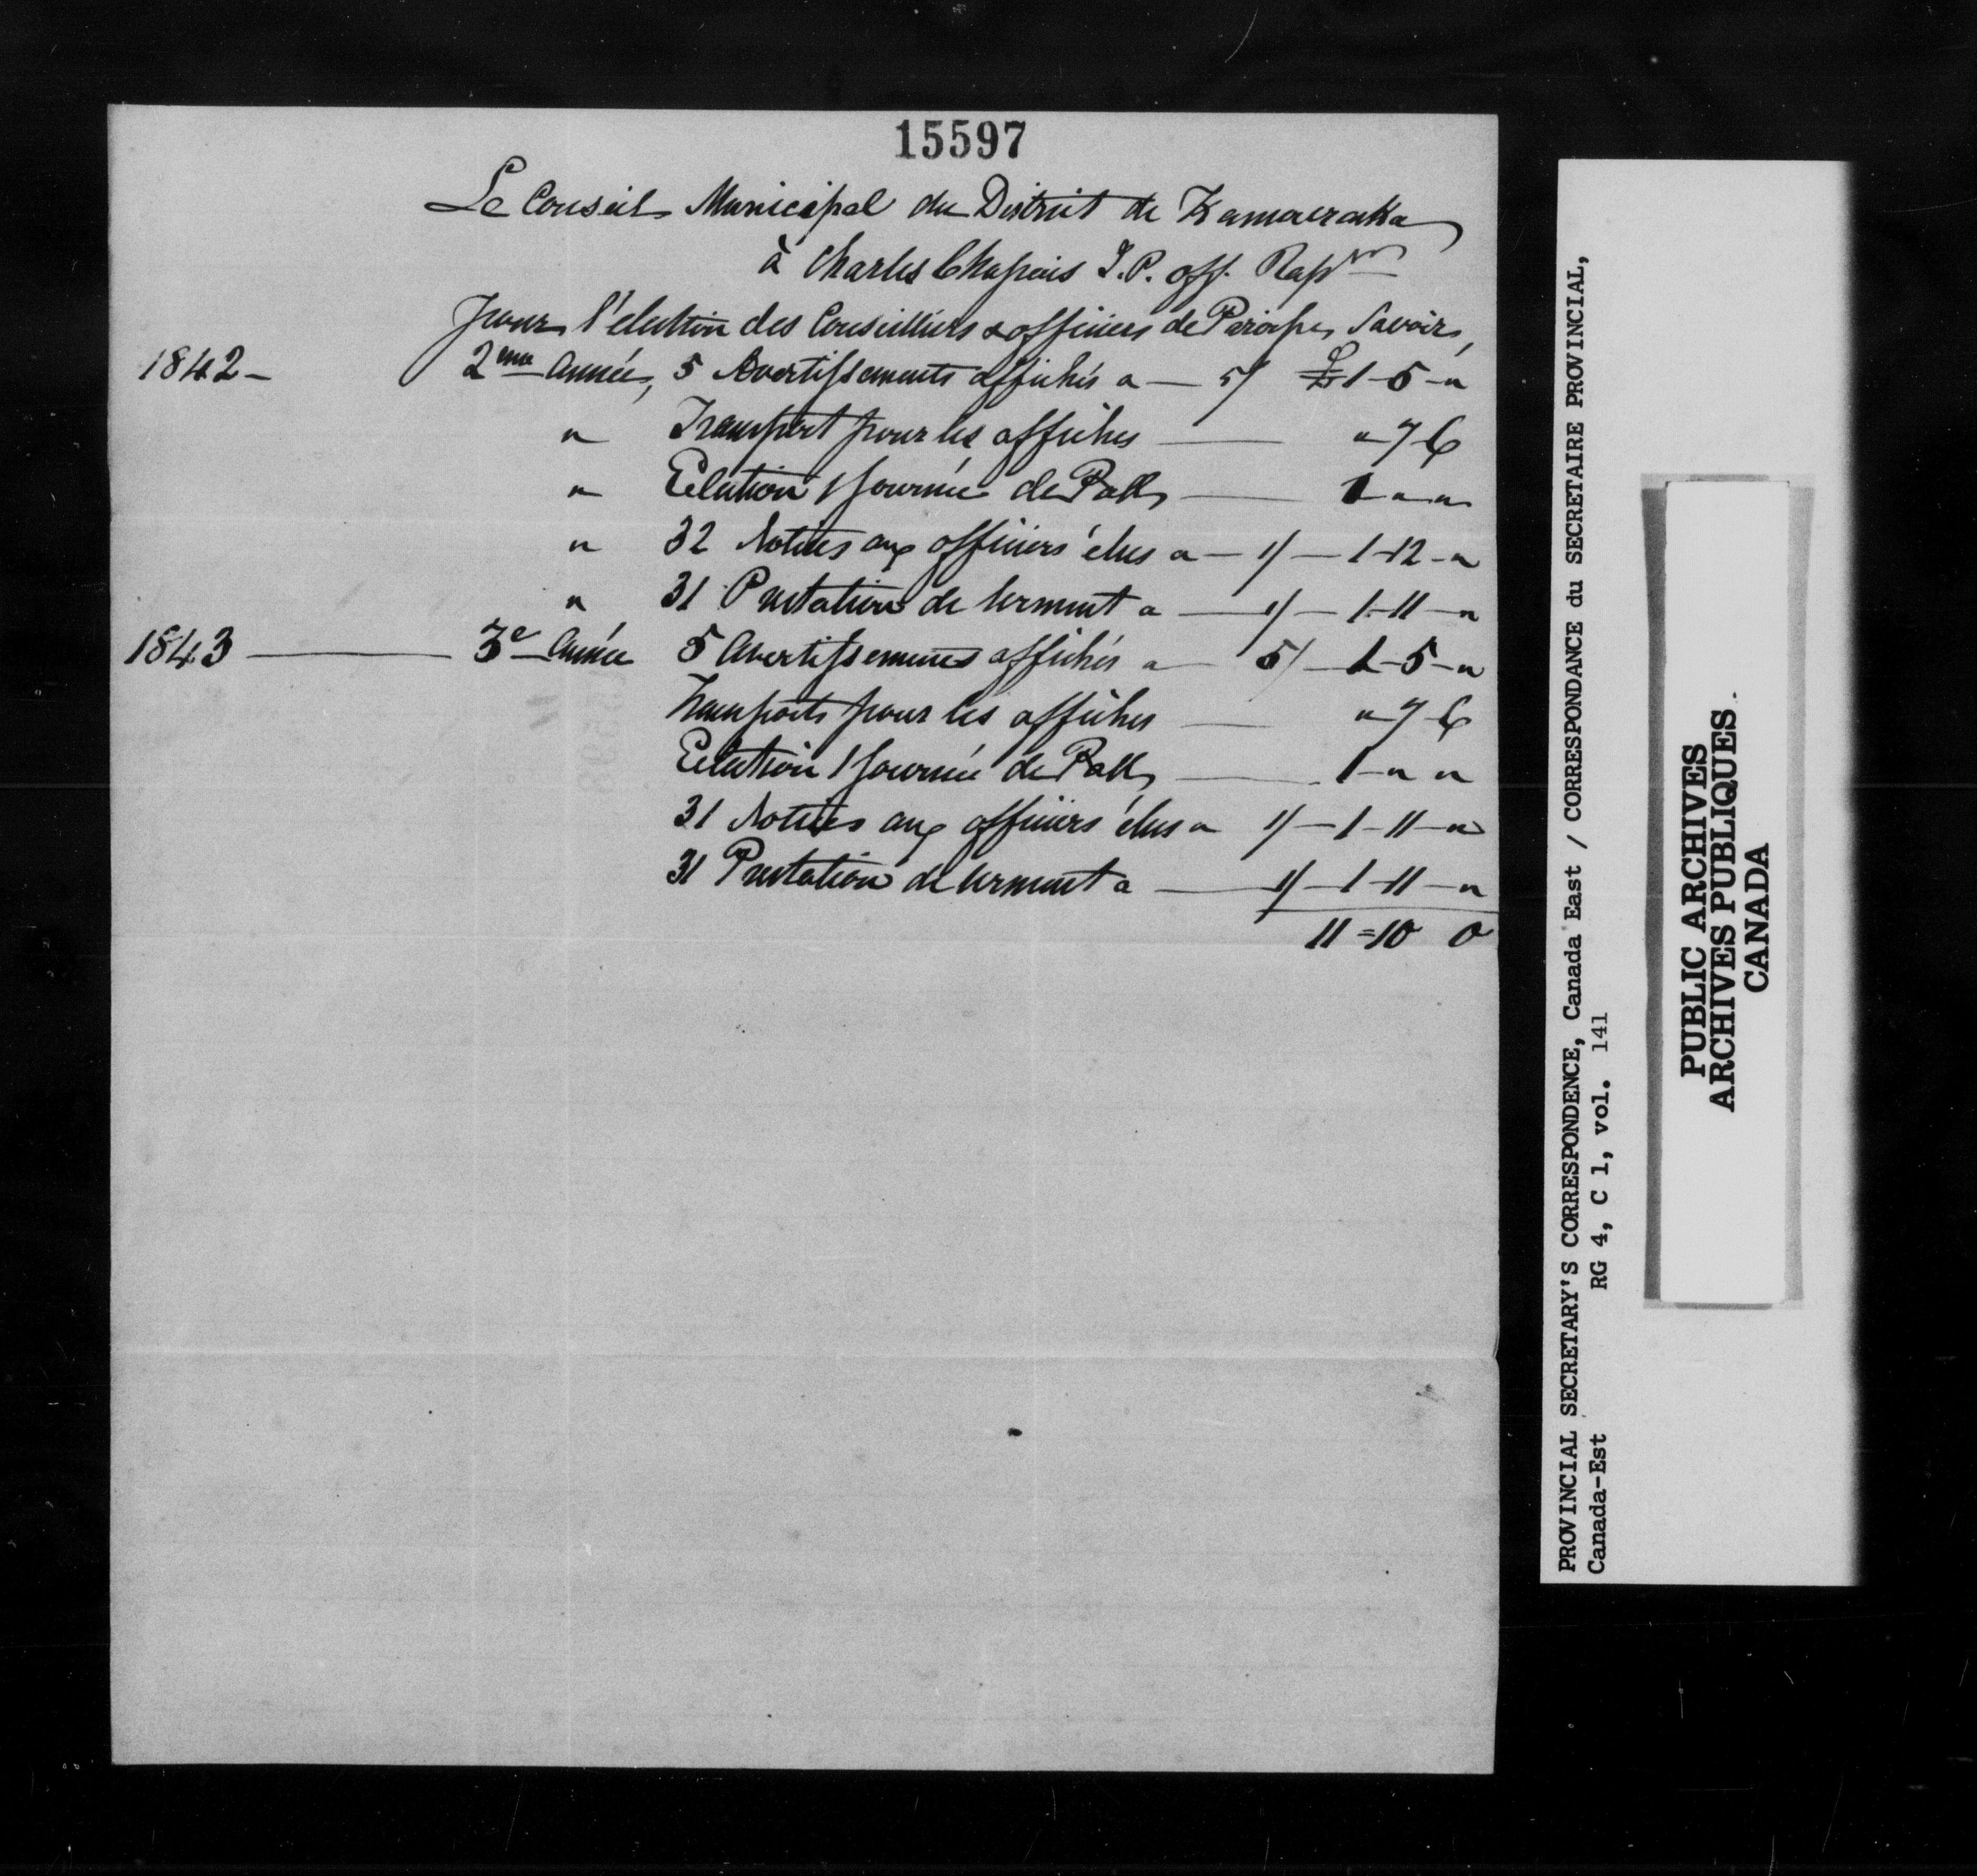 15597
Le Conseil Municipal du District de Kamouraska
à Charles Chapais J.P. off. Rapr
Pour l'élection des Conseilliers & officiers de Paroisse, Savoir,
1842 - 2eme année, 5 Avertissements affichés a — 5/ £ 1 - 5 - "
" Transport pour les affiches — " 7 6
" Election 1 journée de Poll, — 1 " "
" 32 Notices aux officiers élus a — 1/ — 1 - 12 - "
" 31 Prestation de serment a — 1/ — 1 - 11 - "
1843 — 3e année 5 Avertissements affichés a 5/ — 1 - 5 - "
Transports pour les affiches — " 7 6
Election 1 journée de Poll, — 1 - " "
31 Notices aux officiers élus a 1/ — 1 - 11 - "
31 Prestation de serment a — 1/ — 1 - 11 - "
11 = 10 0
PROVINCIAL SECRETARY'S CORRESPONDENCE, Canada East / CORRESPONDANCE du SECRETAIRE PROVINCIAL,
Canada-Est RG 4, C 1, vol. 141
PUBLIC ARCHIVES
ARCHIVES PUBLIQUES
CANADA